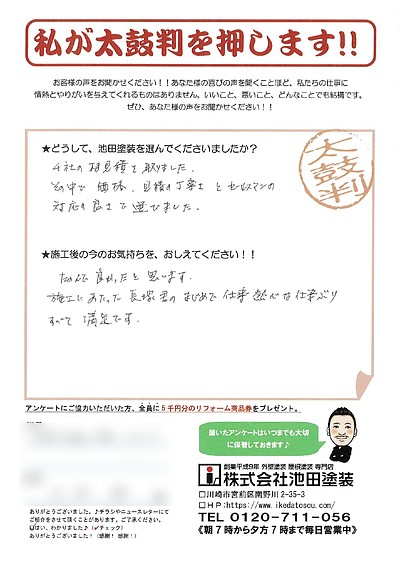 私が太鼓判を押します!!
お客様の声をお聞かせください！！あなた様の喜びの声を聞くことほど、私たちの仕事に
情熱とやりがいを与えてくれるものはありません。いいこと、悪いこと、どんなことでも結構です。
ぜひ、あなた様の声をお聞かせください！！
★どうして、池田塗装を選んでくださいましたか？
太鼓判
4社の相見積を取りました。
その中で価格、見積の丁寧さとセールスマンの
対応の良さで選びました。
★施工後の今のお気持ちを、おしえてください！！
たのんで良かったと思います。
施工にあたった長塚君のまじめで仕事熱心な仕事ぶり
すべて満足です。
アンケートにご協力いただいた方、全員に５千円分のリフォーム商品券をプレゼント。
届いたアンケートはいつまでも大切
に保管しておきます♪
創業平成9年 外壁塗装 屋根塗装 専門店
株式会社池田塗装
□川崎市宮前区南野川 2-35-3
□HP:https://www.ikedatosou.com/
TEL 0120-711-056
《朝７時から夕方７時まで毎日営業中》
ありがとうございました。♪チラシやニュースレターにて
ご紹介をさせて頂くことがあります。ご了承ください。
はい、わかりました♪（✓チェック）
ありがとうございました！（感謝！感謝！）